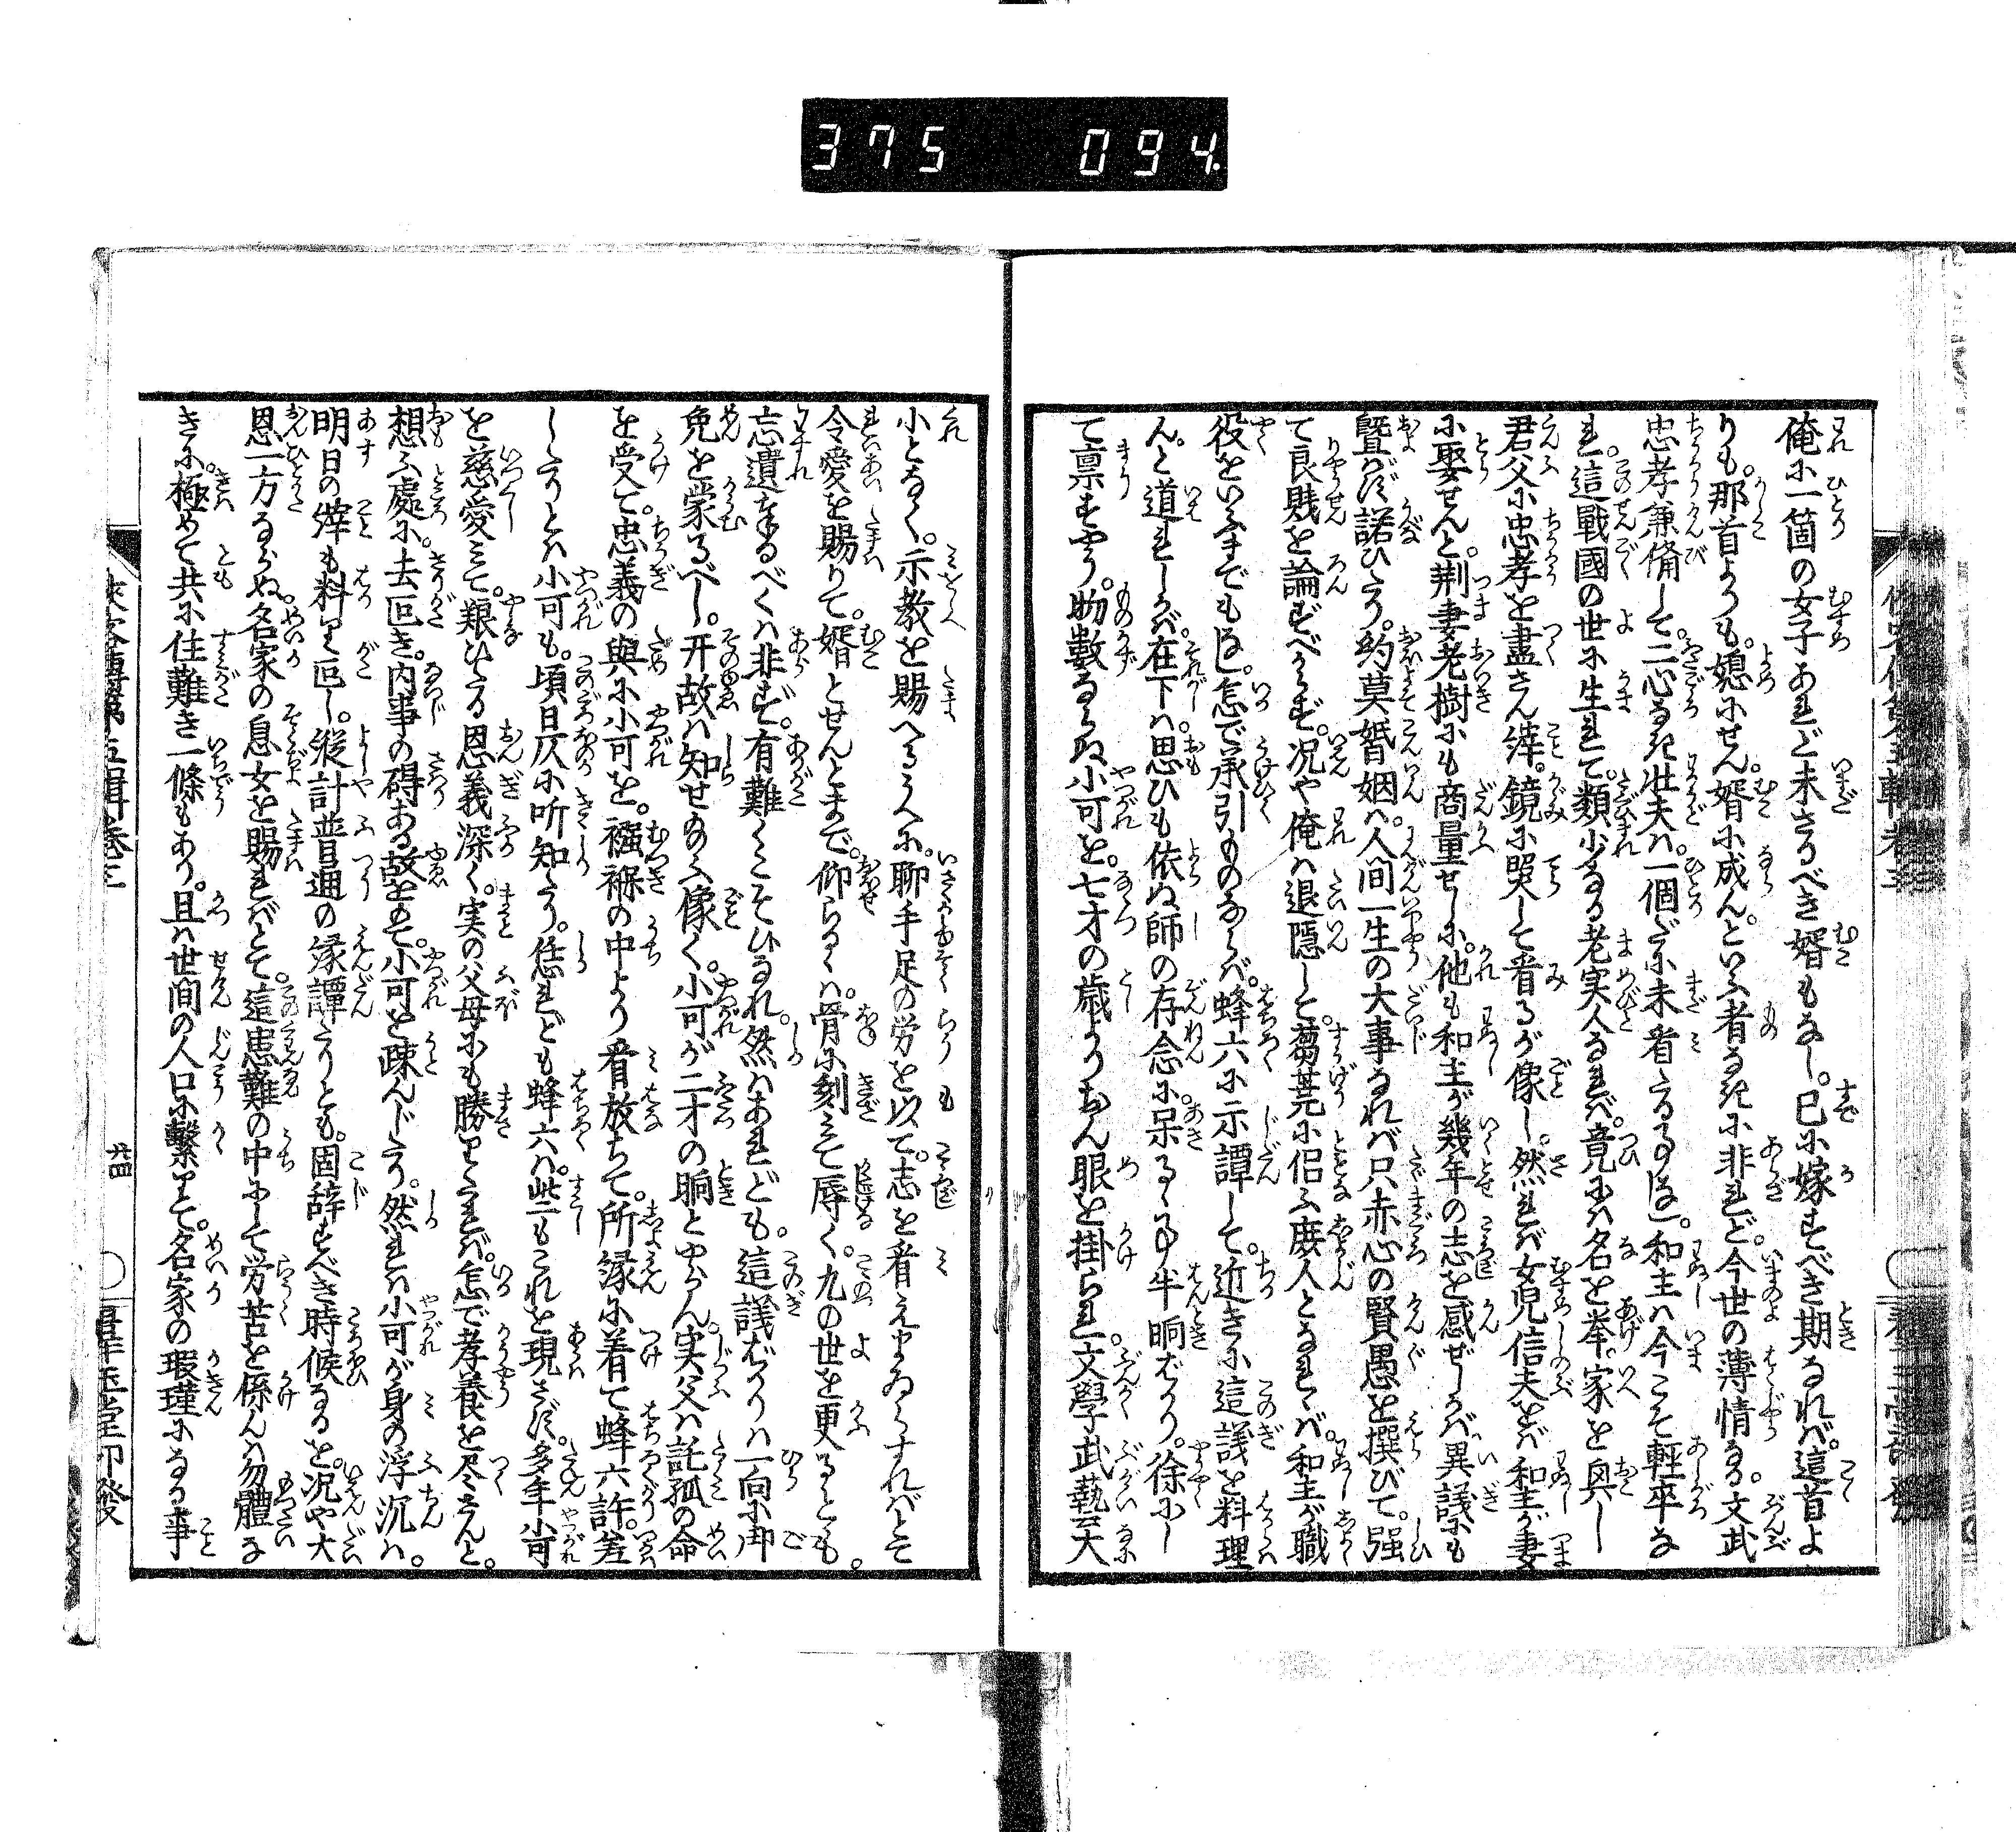 375 094
俺に一箇の女子あれど未さるべき婿もなし。已に嫁すべき期なれば。這首よ
りも。那首よりも。媳にせん。婿に成ん。といふ者なきに非れど。今世の薄情なる。文武
忠孝兼備して。二心なき壮夫は。一個だに未看たる事なし。和主は今こそ軽卒な
れ。這戰國の世に生れて。類少なる老実人なれば。竟には名を挙。家を興し
君父に忠孝を盡さん事。鏡に照して看るが像し。然れば女児信夫をば和主が妻
に娶せんと。荆妻老樹にも商量せしに。他も和主が幾年の志を感ぜしかば異議にも
曁ばず諾ひたり。約莫婚姻は。人間一生の大事なれば只赤心の賢愚を撰びて。强
て良賎を論ずべからず。况や俺は退隠して。蒭蕘に侣ふ庶人となれば。和主が職
役をいふまでもなし。怎で承引ものならば。蜂六に示譚して。近きに這議を料理
ん。と道れしかば。在下は。思ひも依ぬ師の存念に。呆るゝ事半晌ばかり。徐にし
て禀すやう。物數ならぬ小可を。七才の歳よりおん眼を掛られ。文學武藝大
小となく。示教を賜へるうへに。聊手足の労を以て。志を看えまゐらすればとて
令愛を賜りて。婿とせんとまで。仰らるゝは。骨に刻みて辱く。九の世を更るとも。
忘遺奉るべくは非ず。有難くこそ侍るれ。然はあれども。這議ばかりは一向に御
免を蒙るべし。开故は知せ給ふ像く。小可が二才の晌とやらん。実父は託孤の命
を受て。忠義の與に小可を。襁褓の中より看放ちて。所縁に着て蜂六許。差
したりとは小可も。頃日仄に听知たり。恁れども蜂六は。些もこれを現さず。多年小可
を慈愛みて。艱ひたる恩義深く。実の父母にも勝りたれば。怎で孝養を尽さんと。
想ふ處に。去叵き。内事の碍ある故をもて。小可を疎んじたり。然れは小可が身の浮沉は。
明日の事も料り叵し。縦計普通の縁譚たりとも。固辞すべき時候なるを。况や大
恩一方ならぬ。名家の息女を賜ればとて。這患難の中にして労苦を係んは勿體な
きに。極めて共に住難き一條もあり。且は世間の人口に繋りて。名家の瑕瑾になる事
廿四